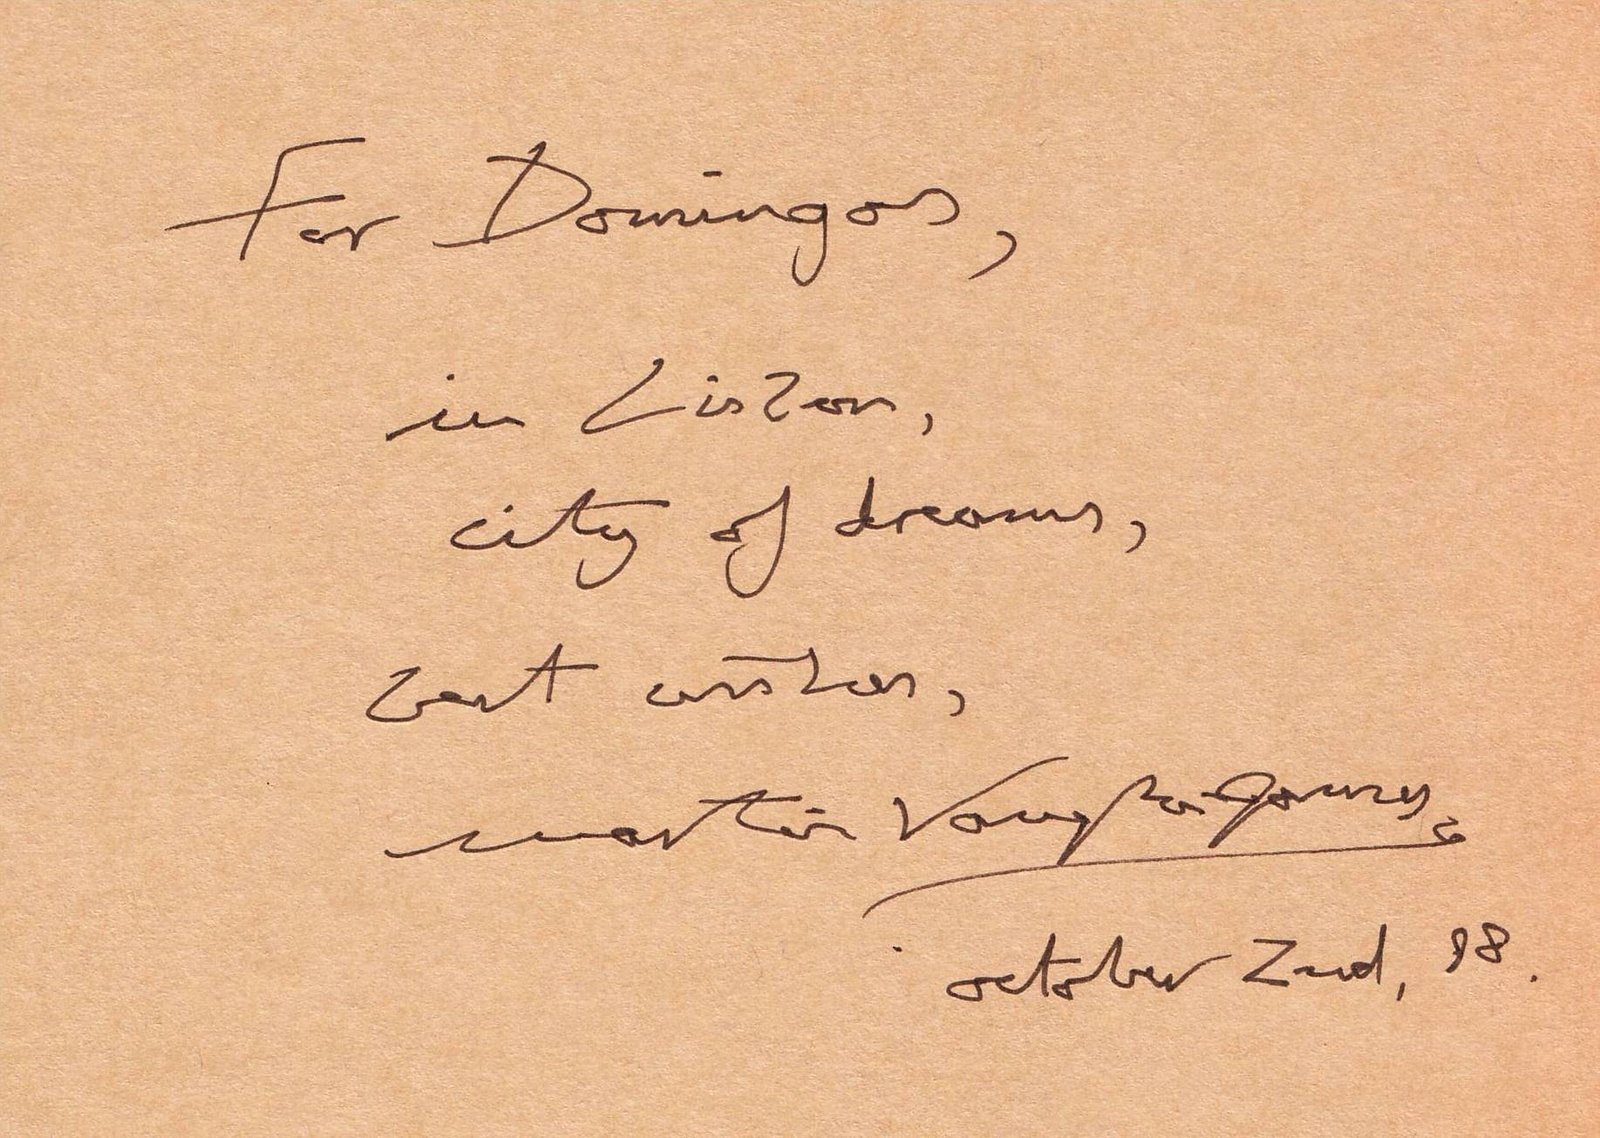 For Domingos,
in Lisbon,
city of dreams,
best wishes,
Martin Vaughn-James
october 2nd, 98.